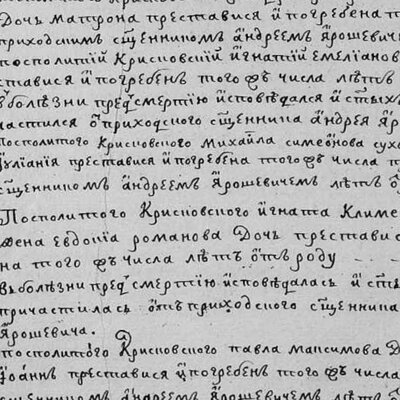 Дочь матрона преставися и погребена т
приходскимъ сщ҃енникомъ андреемъ ярошевиче
посполитий Крисковский игнатий емелїанов
ставися и погребенъ того ѫъ числа лѣтъ
в болѣзни пред смертїю исповѣдался и стыхъ
частился ѿ приходского сщ҃енника андрея яр
Посполитого Крисковского михаила симеонова сухо
їулїанїя преставися и погребена того ѫъ числа п
сщ҃енникомъ андреемъ Ярошевичемъ лѣтъ
Посполитого Крисковского игната Климе
жена евдокїа романова Дочь преставис
на того ѫъ числа лѣтъ ѿтъ роду
в болѣзни пред смертїю исповѣдалась и стых
причастилась ѿтъ приходского сщ҃енника
Ярошевича.
посполитого Крисковского павла максимова
Їоаннъ преставися и погребенъ того ѫъ числа
сщ҃енникомъ андреемъ Ярошевичемъ лѣтъ